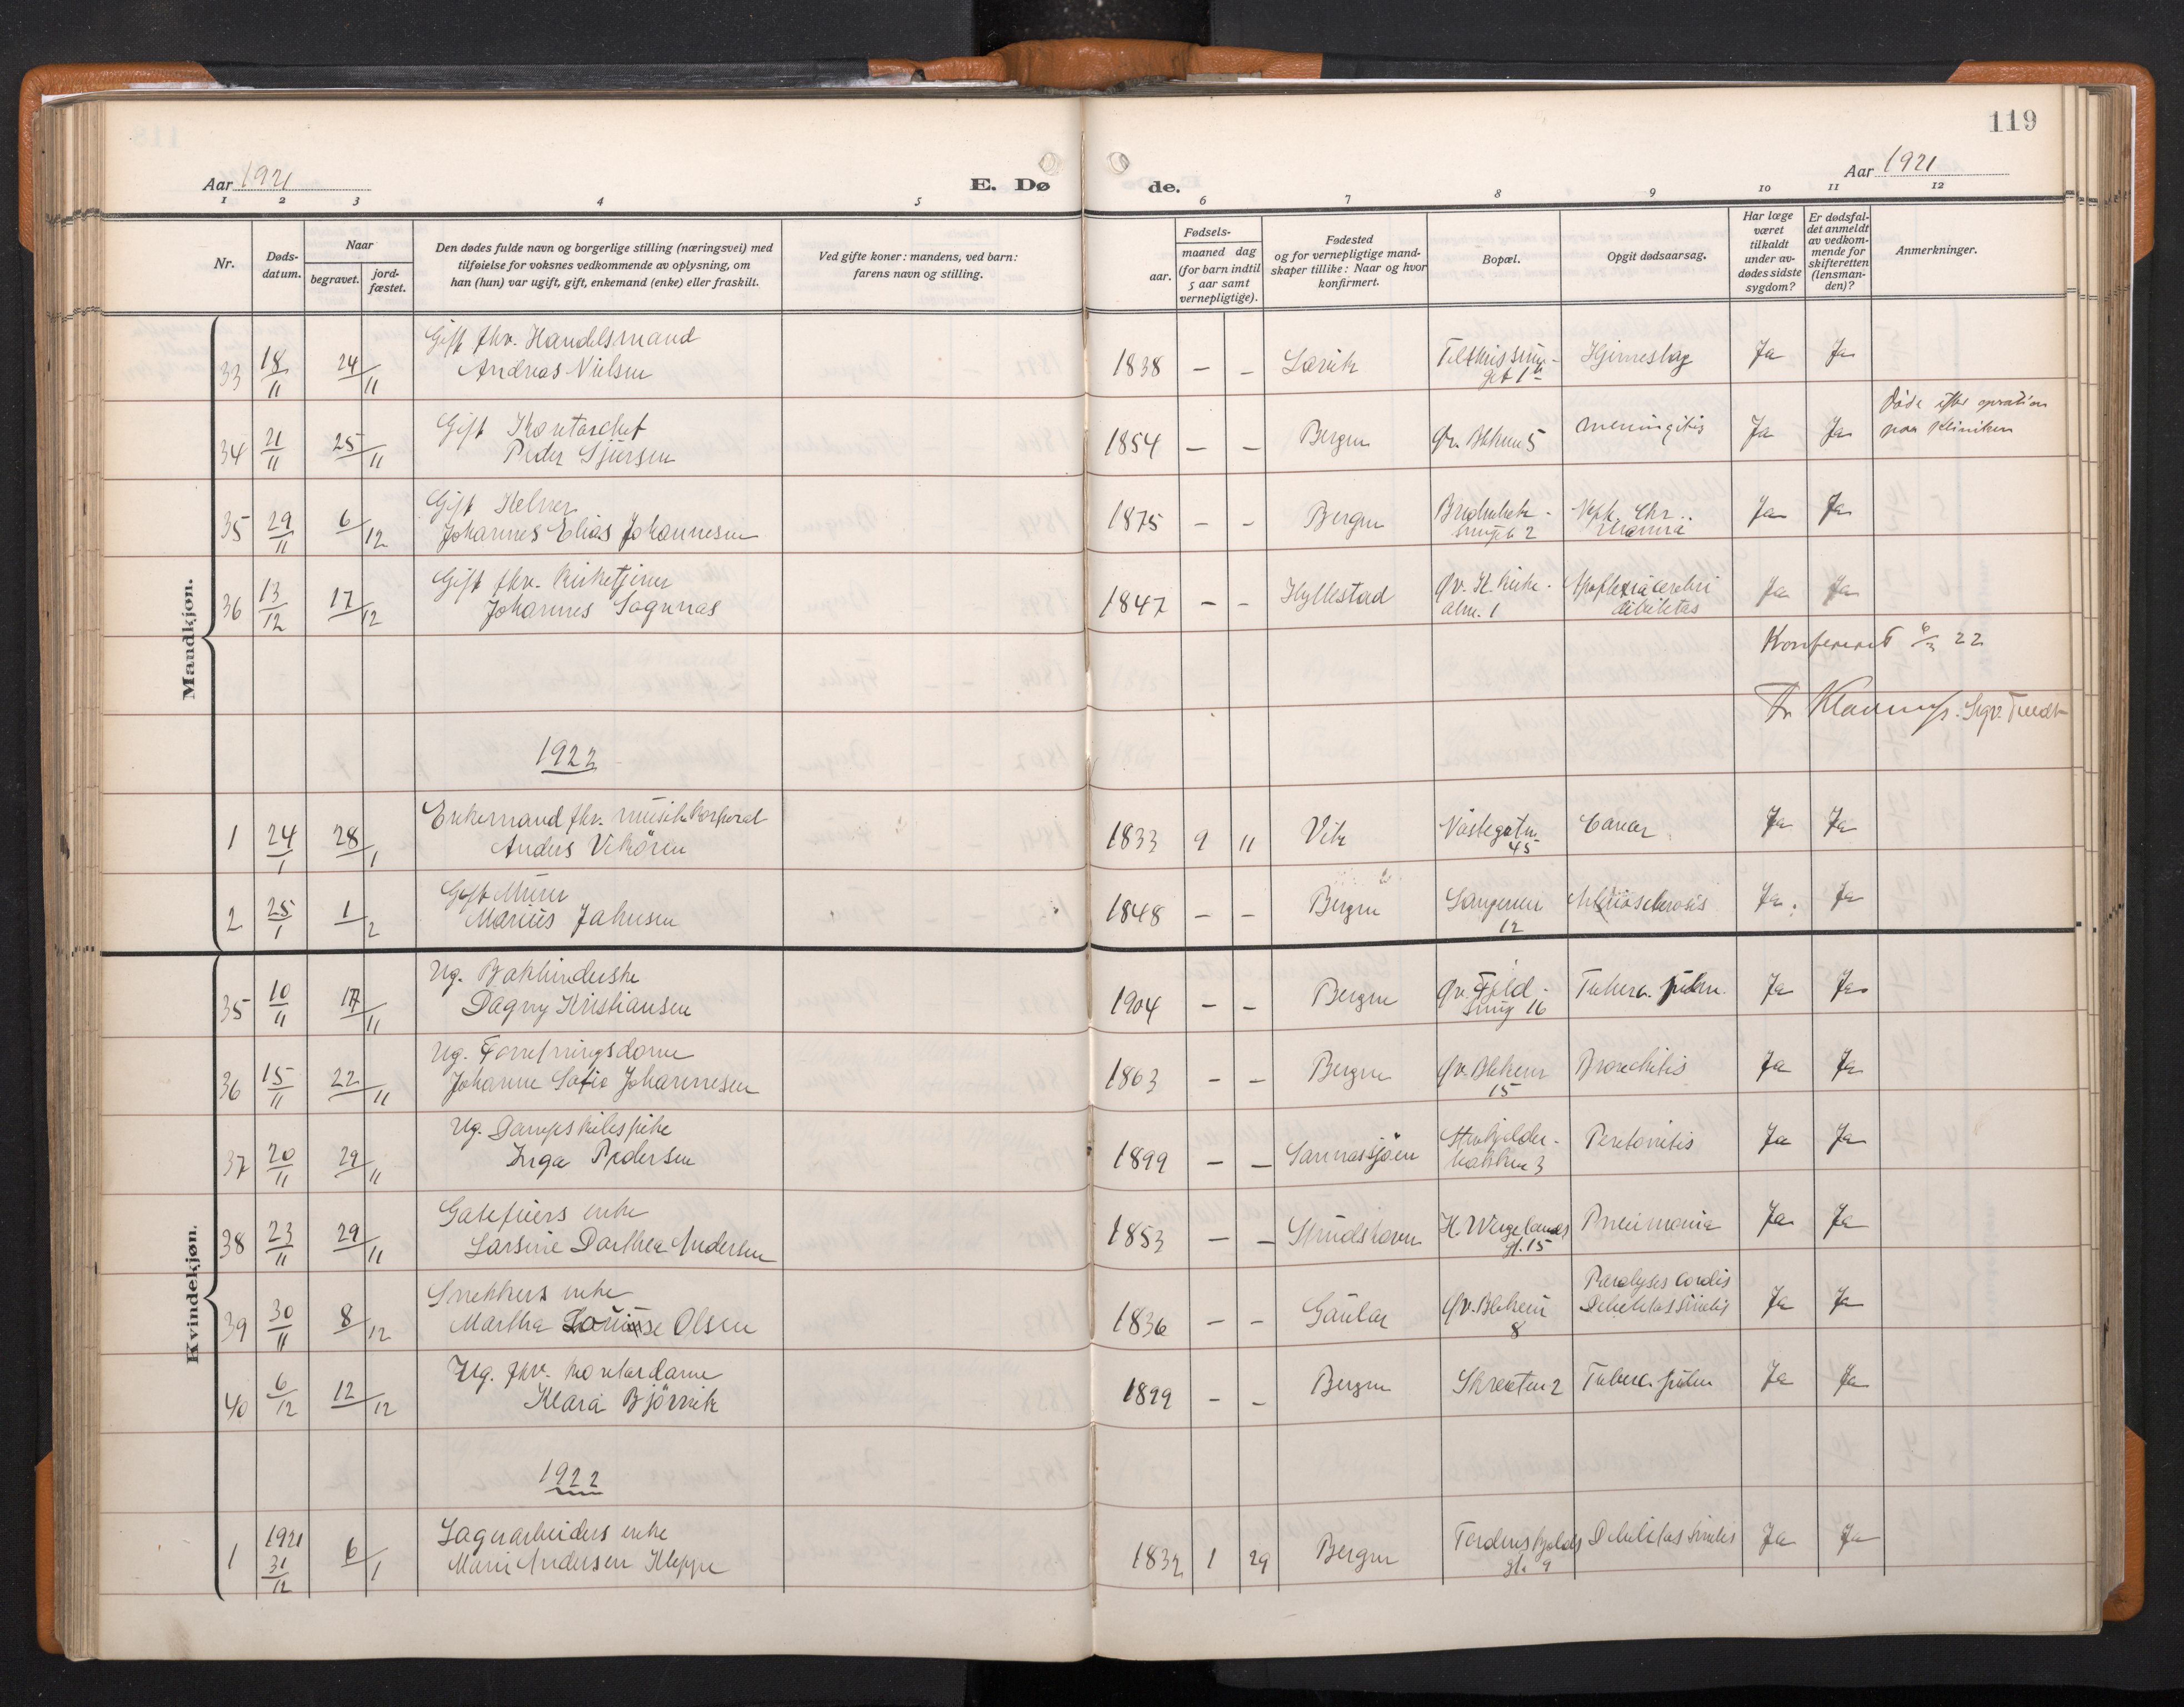 119
Aar 1921
E. Dø
de.
Aar 1921
1 2 3 4 5 6 7 8 9 10 11 12
Nr.
Døds-
datum.
Naar
begravet.
jord-
fæstet.
Den dødes fulde navn og borgerlige stilling (næringsvei) med
tilføielse for voksnes vedkommende av oplysning, om
han (hun) var ugift, gift, enkemand (enke) eller fraskilt.
Ved gifte koner: mandens, ved barn:
farens navn og stilling.
Fødsels-
aar.
maaned dag
(for barn indtil
5 aar samt
vernepligtige).
Fødested
og for vernepligtige mand-
skaper tillike: Naar og hvor
konfirmert.
Bopæl.
Opgit dødsaarsag.
Har læge
været
tilkaldt
under av-
dødes sidste
sygdom?
Er dødsfal-
det anmeldt
av vedkom-
mende for
skifteretten
(lensman-
den)?
Anmerkninger.
Mandkjøn.
Gift fhv. Handelsmand
33 18/11 24/11 Andreas Nielsen 1838 – – Larvik Hjerneslag Ja Ja
Gift Kontorchef
34 21/11 25/11 Peder Sjursen 1854 – – Bergen Øv. Blekevn 5 meningitis Ja Ja
Døde efter operation
paa Kliniken
Gift Kelner
35 29/11 6/12 Johannes Elias Johannesen 1875 – – Bergen 2 Neph. Chr.
Uræmia Ja Ja
Gift fhv. Kirketjener
36 13/12 17/12 Johannes Sagenæs 1847 – – Hyllestad Øv. K. kirke-
alm. 1 Apoplexia cerebri
debilitas Ja Ja
Konfereret 6/3 22
1922
Enkemand fhv. musikkorporal
1 24/1 28/1 Anders Vikören 1833 9 11 Vik Nöstegatn
45 Cancer Ja Ja
Gift Murer
2 25/1 1/2 Marius Jahnsen 1848 – – Bergen 12 Arteriosclerosis Ja. Ja
Kvindekjøn.
Ug. Bokbinderske
35 10/11 17/11 Dagny Kristiansen 1904 – – Bergen Øv. Fjeld-
smug 16 Tuberc. pulm. Ja Ja
Ug. Forretningsdame
36 15/11 22/11 Johanne Sofie Johannesen 1863 – – Bergen Øv. Blekevn
15 Bronchitis Ja Ja
Ug. Dampskibspike
37 20/11 29/11 Inga Pedersen 1899 – – Sannassjöen
bakken 3 Peritonitis Ja Ja
Gatefeiers enke
38 23/11 29/11 Larsine Dorthea Andersen 1853 – – Strudshavn H. Wergelands
gt. 15 Pneumonia Ja Ja
Snekkers enke
39 30/11 8/12 Martha Louise Olsen 1836 – – Gaular Øv. Blekevei
8 Paralysis cordis
Debilitas senilis Ja Ja
Ug. fhv. kontordame
40 6/12 12/12 Klara Björvik 1899 – – Bergen Skreoten 2 Tuberc. pulm Ja Ja
1922
Lagerarbeiders enke
1 1921 31/12 6/1 Marie Andersen Kleppe 1832 1 29 Bergen Tordenskjolds
gt. 9 Debilitas senilis Ja Ja